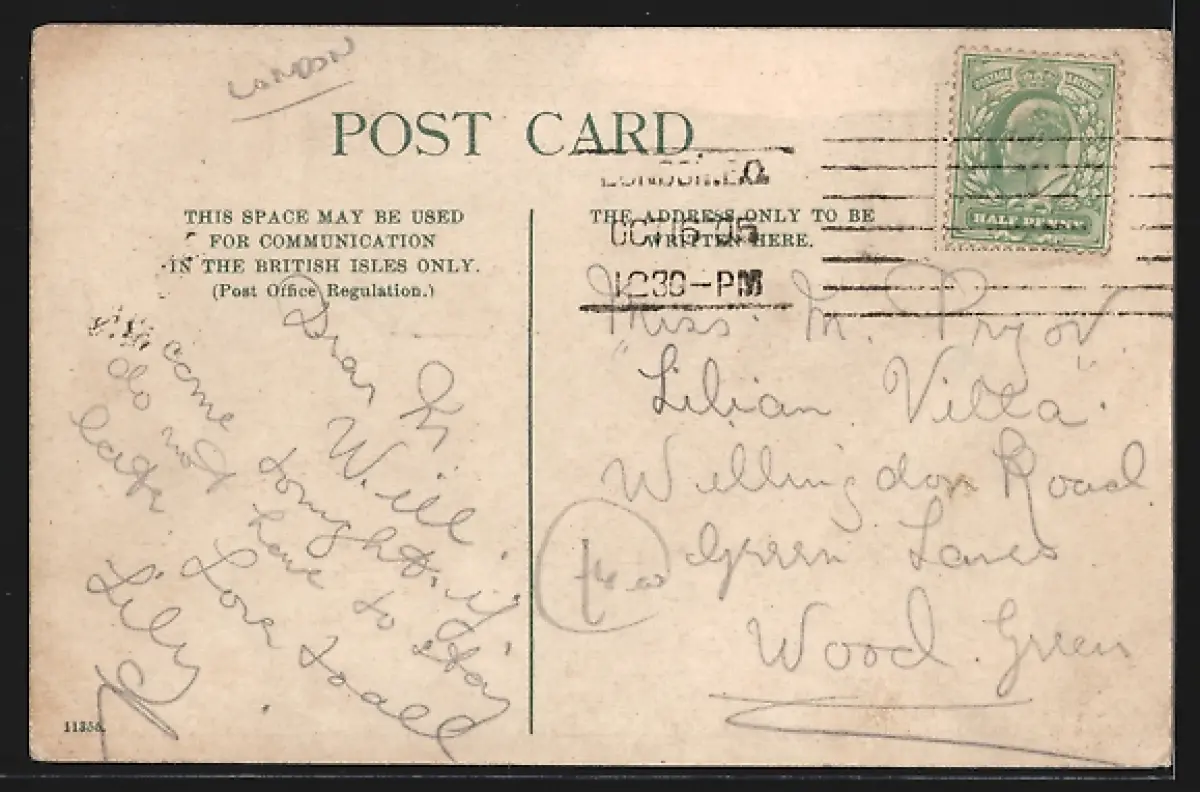 LONDON
POST CARD
THIS SPACE MAY BE USED
FOR COMMUNICATION
IN THE BRITISH ISLES ONLY.
(Post Office Regulation.)
Dear M
Will
come tonight, if
do not have to stay
late. Love to all
Lily
11356.
THE ADDRESS ONLY TO BE
WRITTEN HERE.
LONDON
OCT 16 05
12 30-PM
POSTAGE REVENUE
HALF PENNY
Miss. M. Pryor.
"Lilian Villa."
Wellingdon Road
Green Lanes
Wood Green